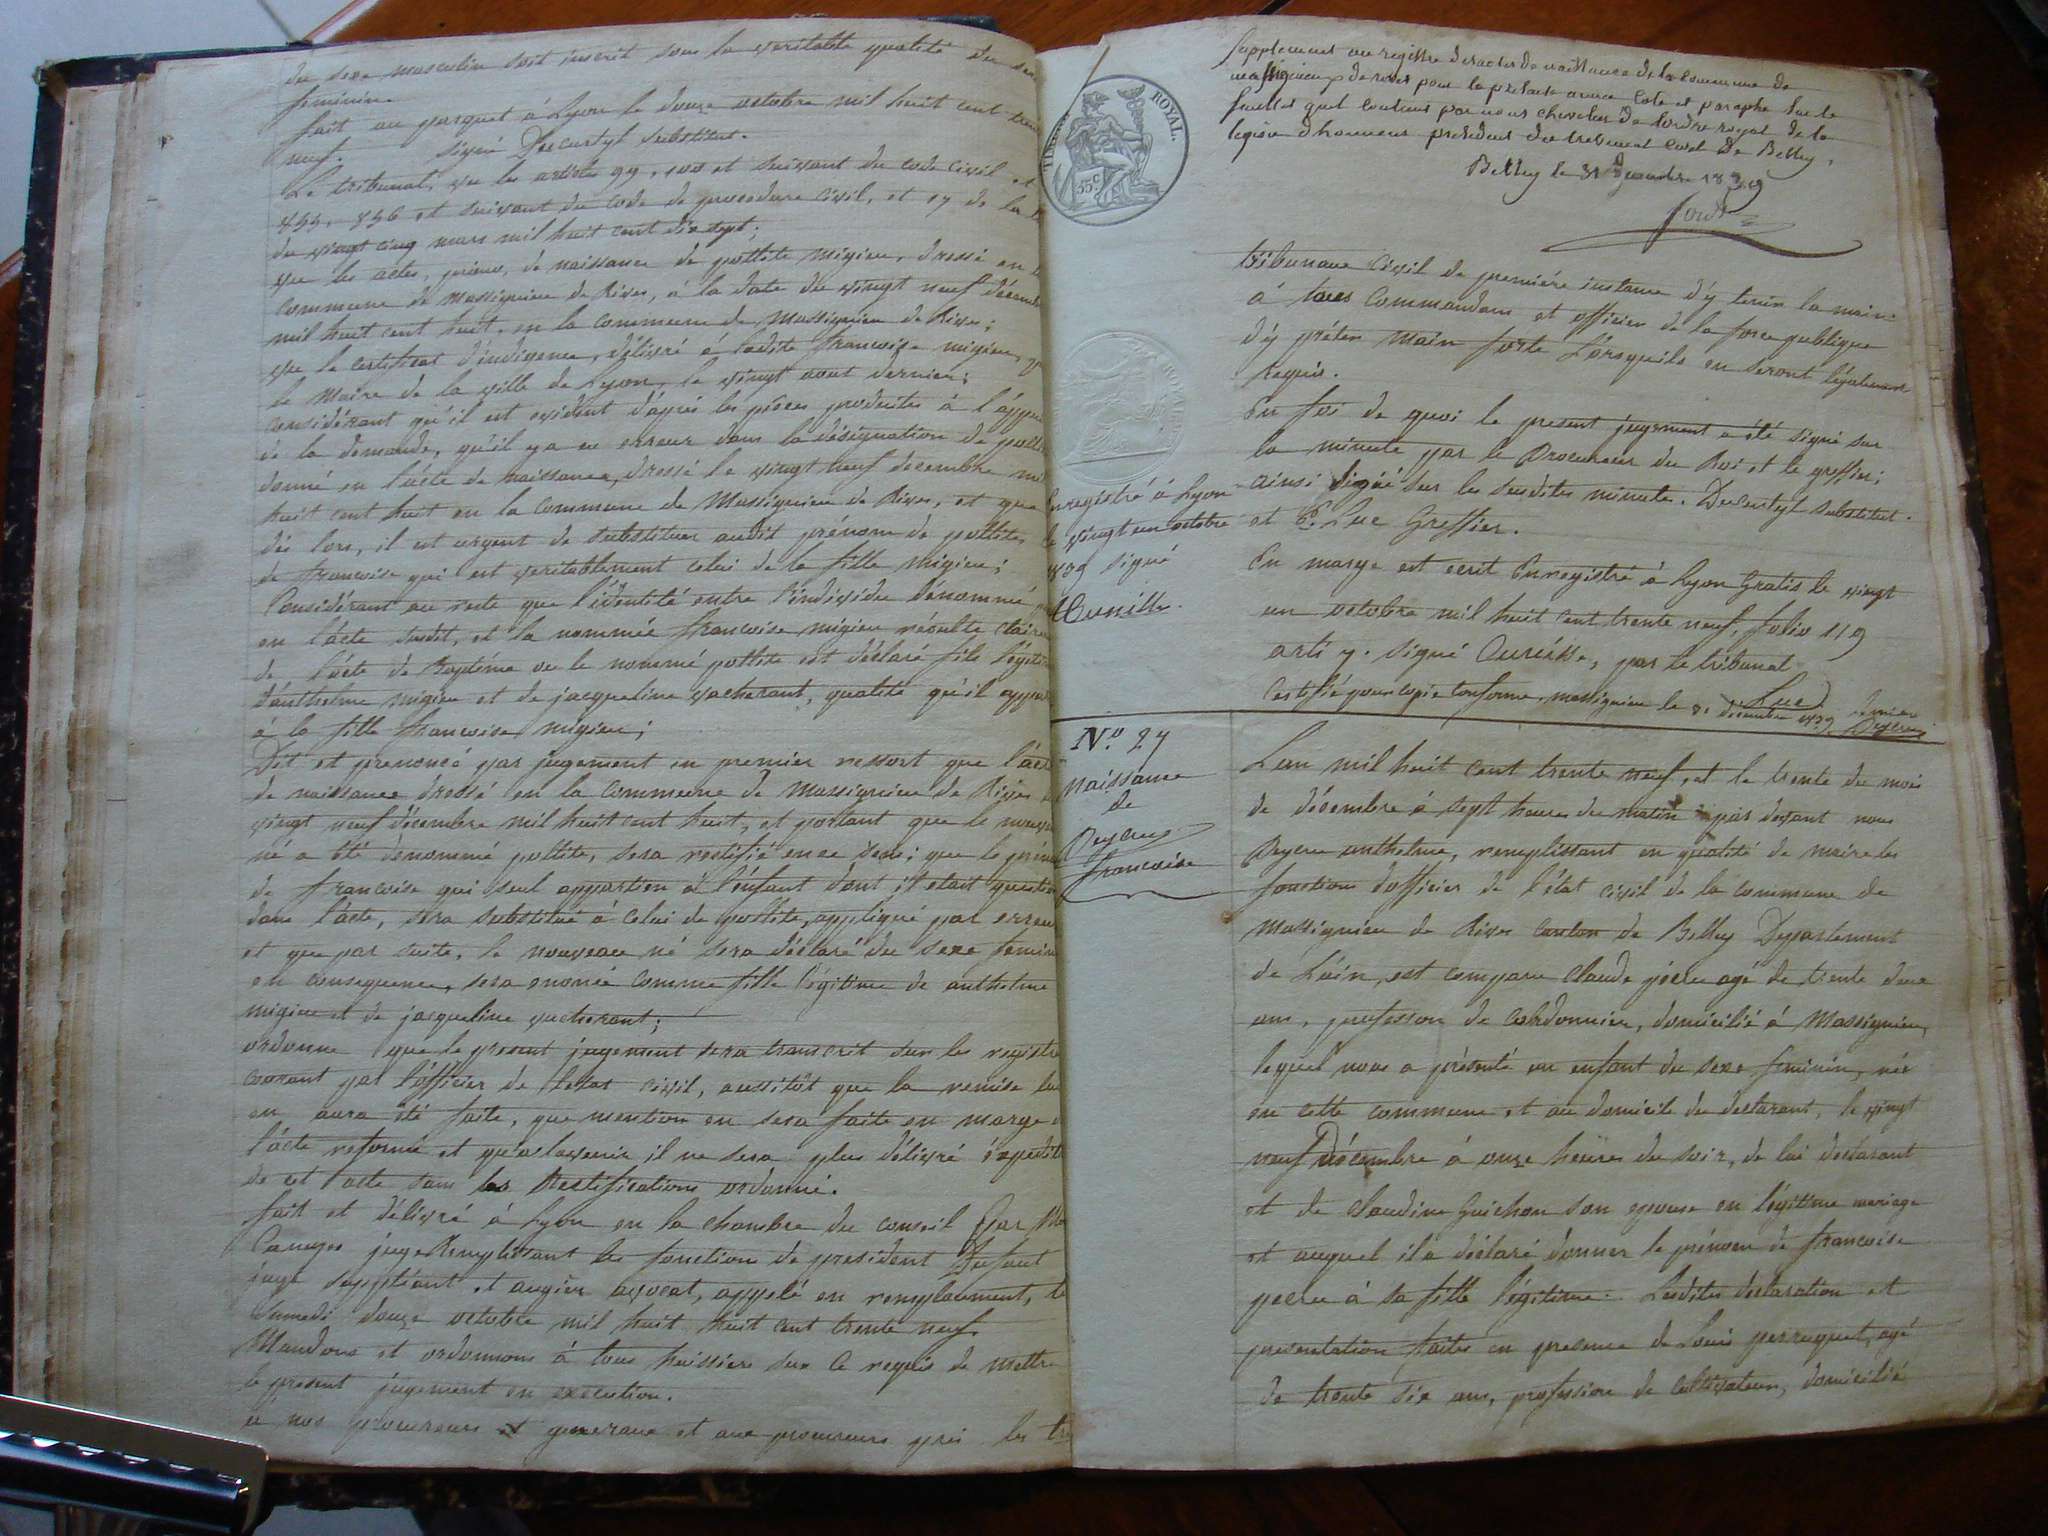 du sexe masculin soit inscrit sous la veritable qualité du sexe
feminin.
fait au parquet à Lyon le douze octobre mil huit cent trente
neuf. signé Decurtyl substitut.
Le tribunal, vu les articles 99, 100 et suivant du code civil et
855, 856 et suivant du code de procedure civil, et 17 de la
du vingt cinq mars mil huit cent dix sept;
vu les actes, de naissance de pollite migieu, dressé en
commune de Massignieu de Rives, à la date du vingt neuf décembre
mil huit cent huit, en la commune de Massignieu de Rives;
vu le certificat d'indigence, délivré à ladite francoise migieu,
le Maire de la ville de Lyon, le vingt aout dernier;
considérant qu'il est evident d'après les pièces produites à l'appui
de la demande, qu'il y a eu erreur dans la désignation de pollite
donné en l'acte de naissance, dressé le vingt neuf decembre mil
huit cent huit en la commune de Massignieu de Rives, et que
dès lors, il est urgent de substituer audit prénom de pollite,
de francoise qui est veritablement celui de la fille migieu;
Considérant au reste que l'identité entre l'individu dénommé
en l'acte susdit, et la nommée francoise migieu résulte claire
de l'acte de Baptéme ou le nommé pollite est déclaré fils légitime
d'anthelme migieu et de jacqueline vacherant, qualité qu'il
à la fille francoise migieu;
Dit et prononcé par jugement en premier ressort que l'acte
de naissance dressé en la commune de Massignieu de Rives
vingt neuf décembre mil huit cent huit, et portant que le nouveau
né a été denommé pollite, sera rectifié en ce sens; que le prénom
de francoise qui seul appartien à l'enfant dont il etait question
dans l'acte, sera substitué à celui de pollite, appliqué par erreur
et que par suite, le nouveau né sera déclaré du sexe feminin
en consequence, sera enoncé comme fille légitime de anthelme
migieu et de jacqueline vacherant;
ordonne que le present jugement sera transcrit sur les registre
courant par l'officier de l'etat civil, aussitôt que la remise lui
en aura été faite, que mention en sera faite en marge
l'acte reformé et qu'a l'avenir il ne sera plus délivré expédition
de cet acte sans les Rectifications ordonné.
fait et délivré à Lyon en la chambre du conseil Par
juge Remplissant les fonction de president Dufaut
juge suppléant et augier avocat, appelé en remplacement, le
Samedi douze octobre mil huit huit cent trente neuf.
Mandons et ordonnons à tous huissiers sur ce requis de mettre
le present jugement en execution.
à nos procureurs et generaux et aux procureurs près les
Supplement au registre des actes de naissance de la commune de
massignieu de rives pour la présente année coté et paraphé sur le
feuillet quel contient par nous chevalier de l'ordre royal de la
legion d'honneur president du tribunal civil de Belley,
Belley le 31 Decembre 1839
TIMBRE ROYAL.
35 c.
tribunaux civil de première instance d'y tenir la main
à tous commandans et officier de la force publique
d'y préter main forte lorsquils en seront légalement
requis.
En foi de quoi le present jugement a été signé sur
la minute par le Procureur du Roi et le greffier;
ainsi signé sur les susdites minute. Decurtyl substitut
et P. Luc Greffier.
En marge est ecrit Enregistré à Lyon Gratis le vingt
un octobre mil huit cent trente neuf, folio 119
arti 7. signé, par le tribunal
Luc
Certifié pour copie conforme, massignieu le 31 décembre 1839
Enregistré à Lyon
le vingt un octobre
1839 signé
No 27
Naissance
de
Peyecru
francoise
Lan mil huit cent trente neuf, et le trente du mois
de décembre à sept heures du matin par devant nous
anthelme, remplissant en qualité de maire les
fonction d'officier de l'état civil de la commune de
Massignieu de Rives canton de Belley Departement
de l'ain, est comparu Claude agé de trente deux
ans, profession de cordonnier, domicilié à Massignieu,
lequel nous a présenté un enfant du sexe feminin, née
en cette commune et au domicile du declarant, le vingt
neuf décembre à onze heures du soir, de lui declarant
et de Claudine Guichon son epouse en légitime mariage
et auquel il a déclaré donner le prénom de francoise
à sa fille légitime. Lesdites declaration et
presentation faites en presence de Louis perroquet, agé
de trente six ans, profession de cultivateur, domicilié